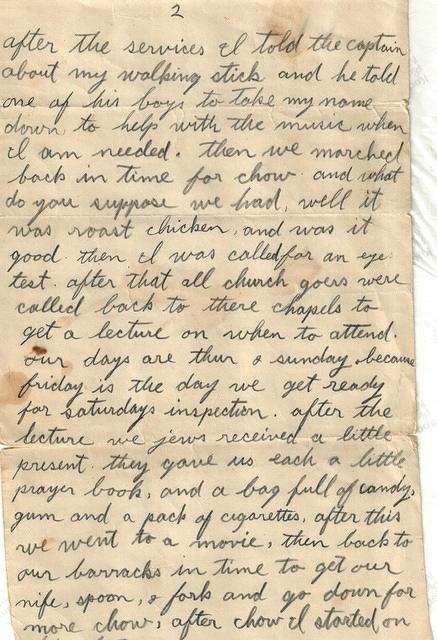 2
after the services I told the captain
about my walking stick and he told
one of his boys to take my name
down to help with the music when
I am needed. then we marched
back in time for chow and what
do you suppose we had, well it
was roast chicken, and was it
good. then I was called for an eye
test. after that all church goers were
called back to there chapels to
get a lecture on when to attend.
our days are thur & sunday, because
friday is the day we get ready
for saturdays inspection. after the
lecture we jews received a little
present. they gave us each a little
prayer book, and a bag full of candy,
gum and a pack of cigarettes, after this
we went to a movie, then back to
our barracks in time to get our
nife, spoon, & fork and go down for
more chow, after chow I started on